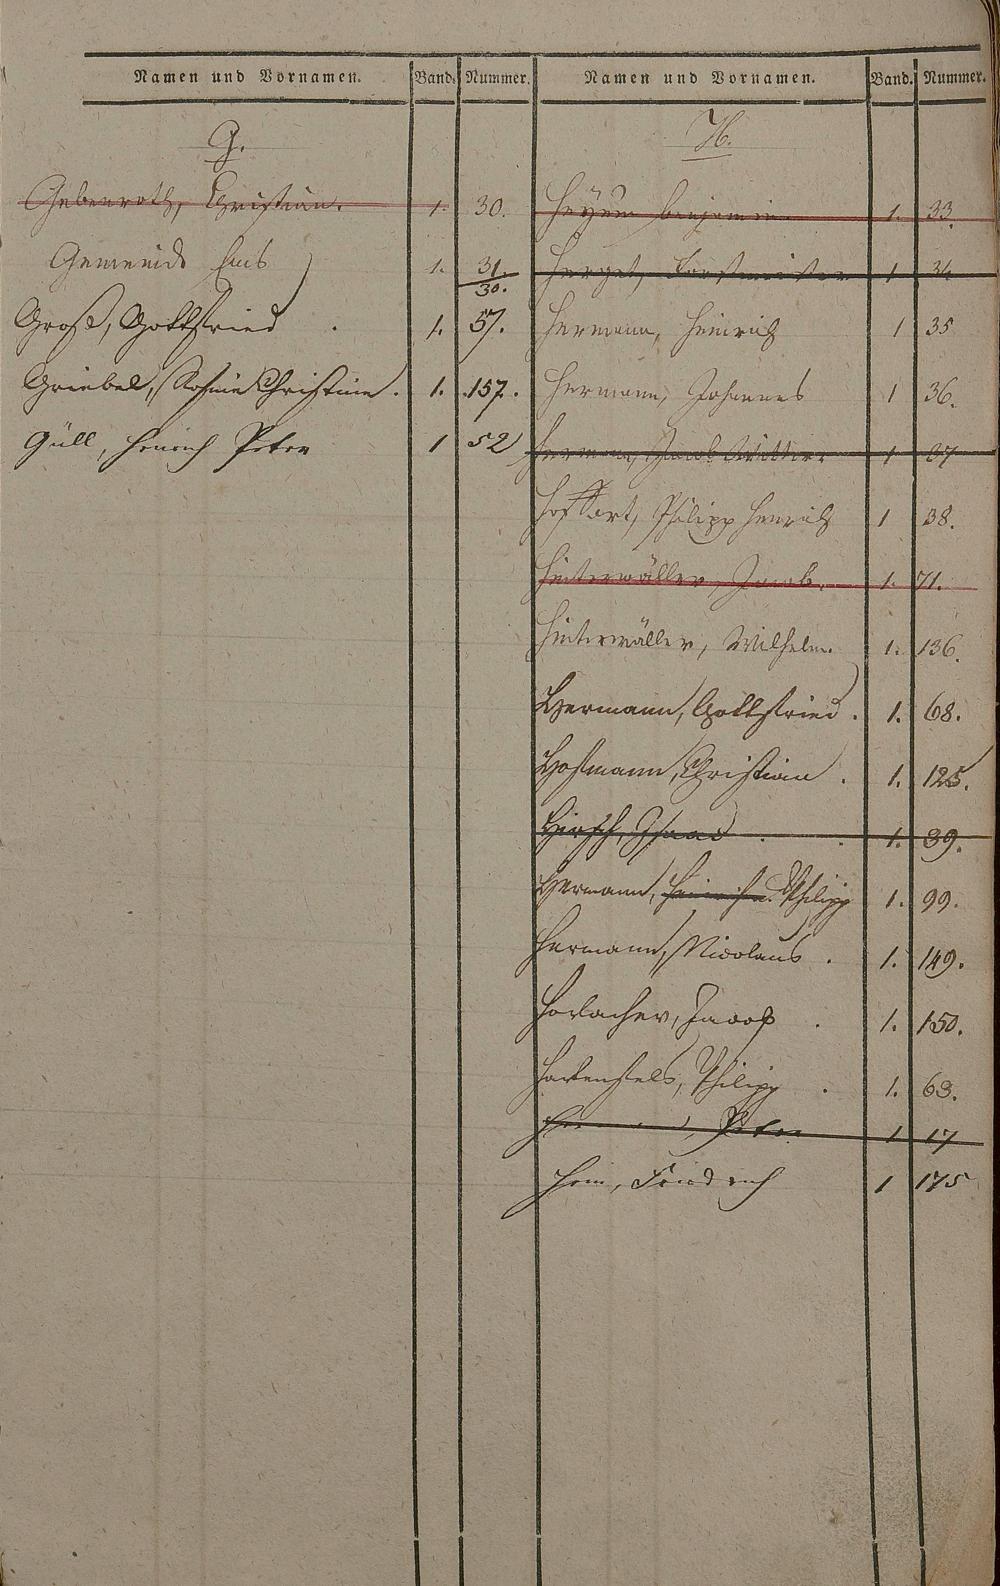 Namen und Vornamen. Band. Nummer.
G.
Gebenroth, Christian. 1. 30.
Gemeinde Ems 1. 31./30.
Groß, Gottfried . 1. 57.
Griebel, Christine. 1. 157.
Güll, Heinrich Peter 1 52
Namen und Vornamen. Band. Nummer.
H.
Heyum Benjamin. 1. 33.
Herget, Forstmeister 1 34
Hermann, Heinrich 1 35
Hermann, Johannes 1 36.
Hermann, Jacob 1 37
Hoffart, Philipp Henrich 1 38.
Hinterwäller, Jacob. 1. 71.
Hinterwäller, Wilhelm. 1. 136.
Hermann, Gottfried. 1. 68.
Hofmann, Christian. 1. 125.
Hirsch, Isaac . . 1. 39.
Hermann, Philipp 1. 99.
Hermann, Nicolaus. 1. 149.
Horlacher, Jacob . 1. 150.
Hartenfels, Philipp . 1. 63.
Peter 1 17
Hein, Friedrich 1 175